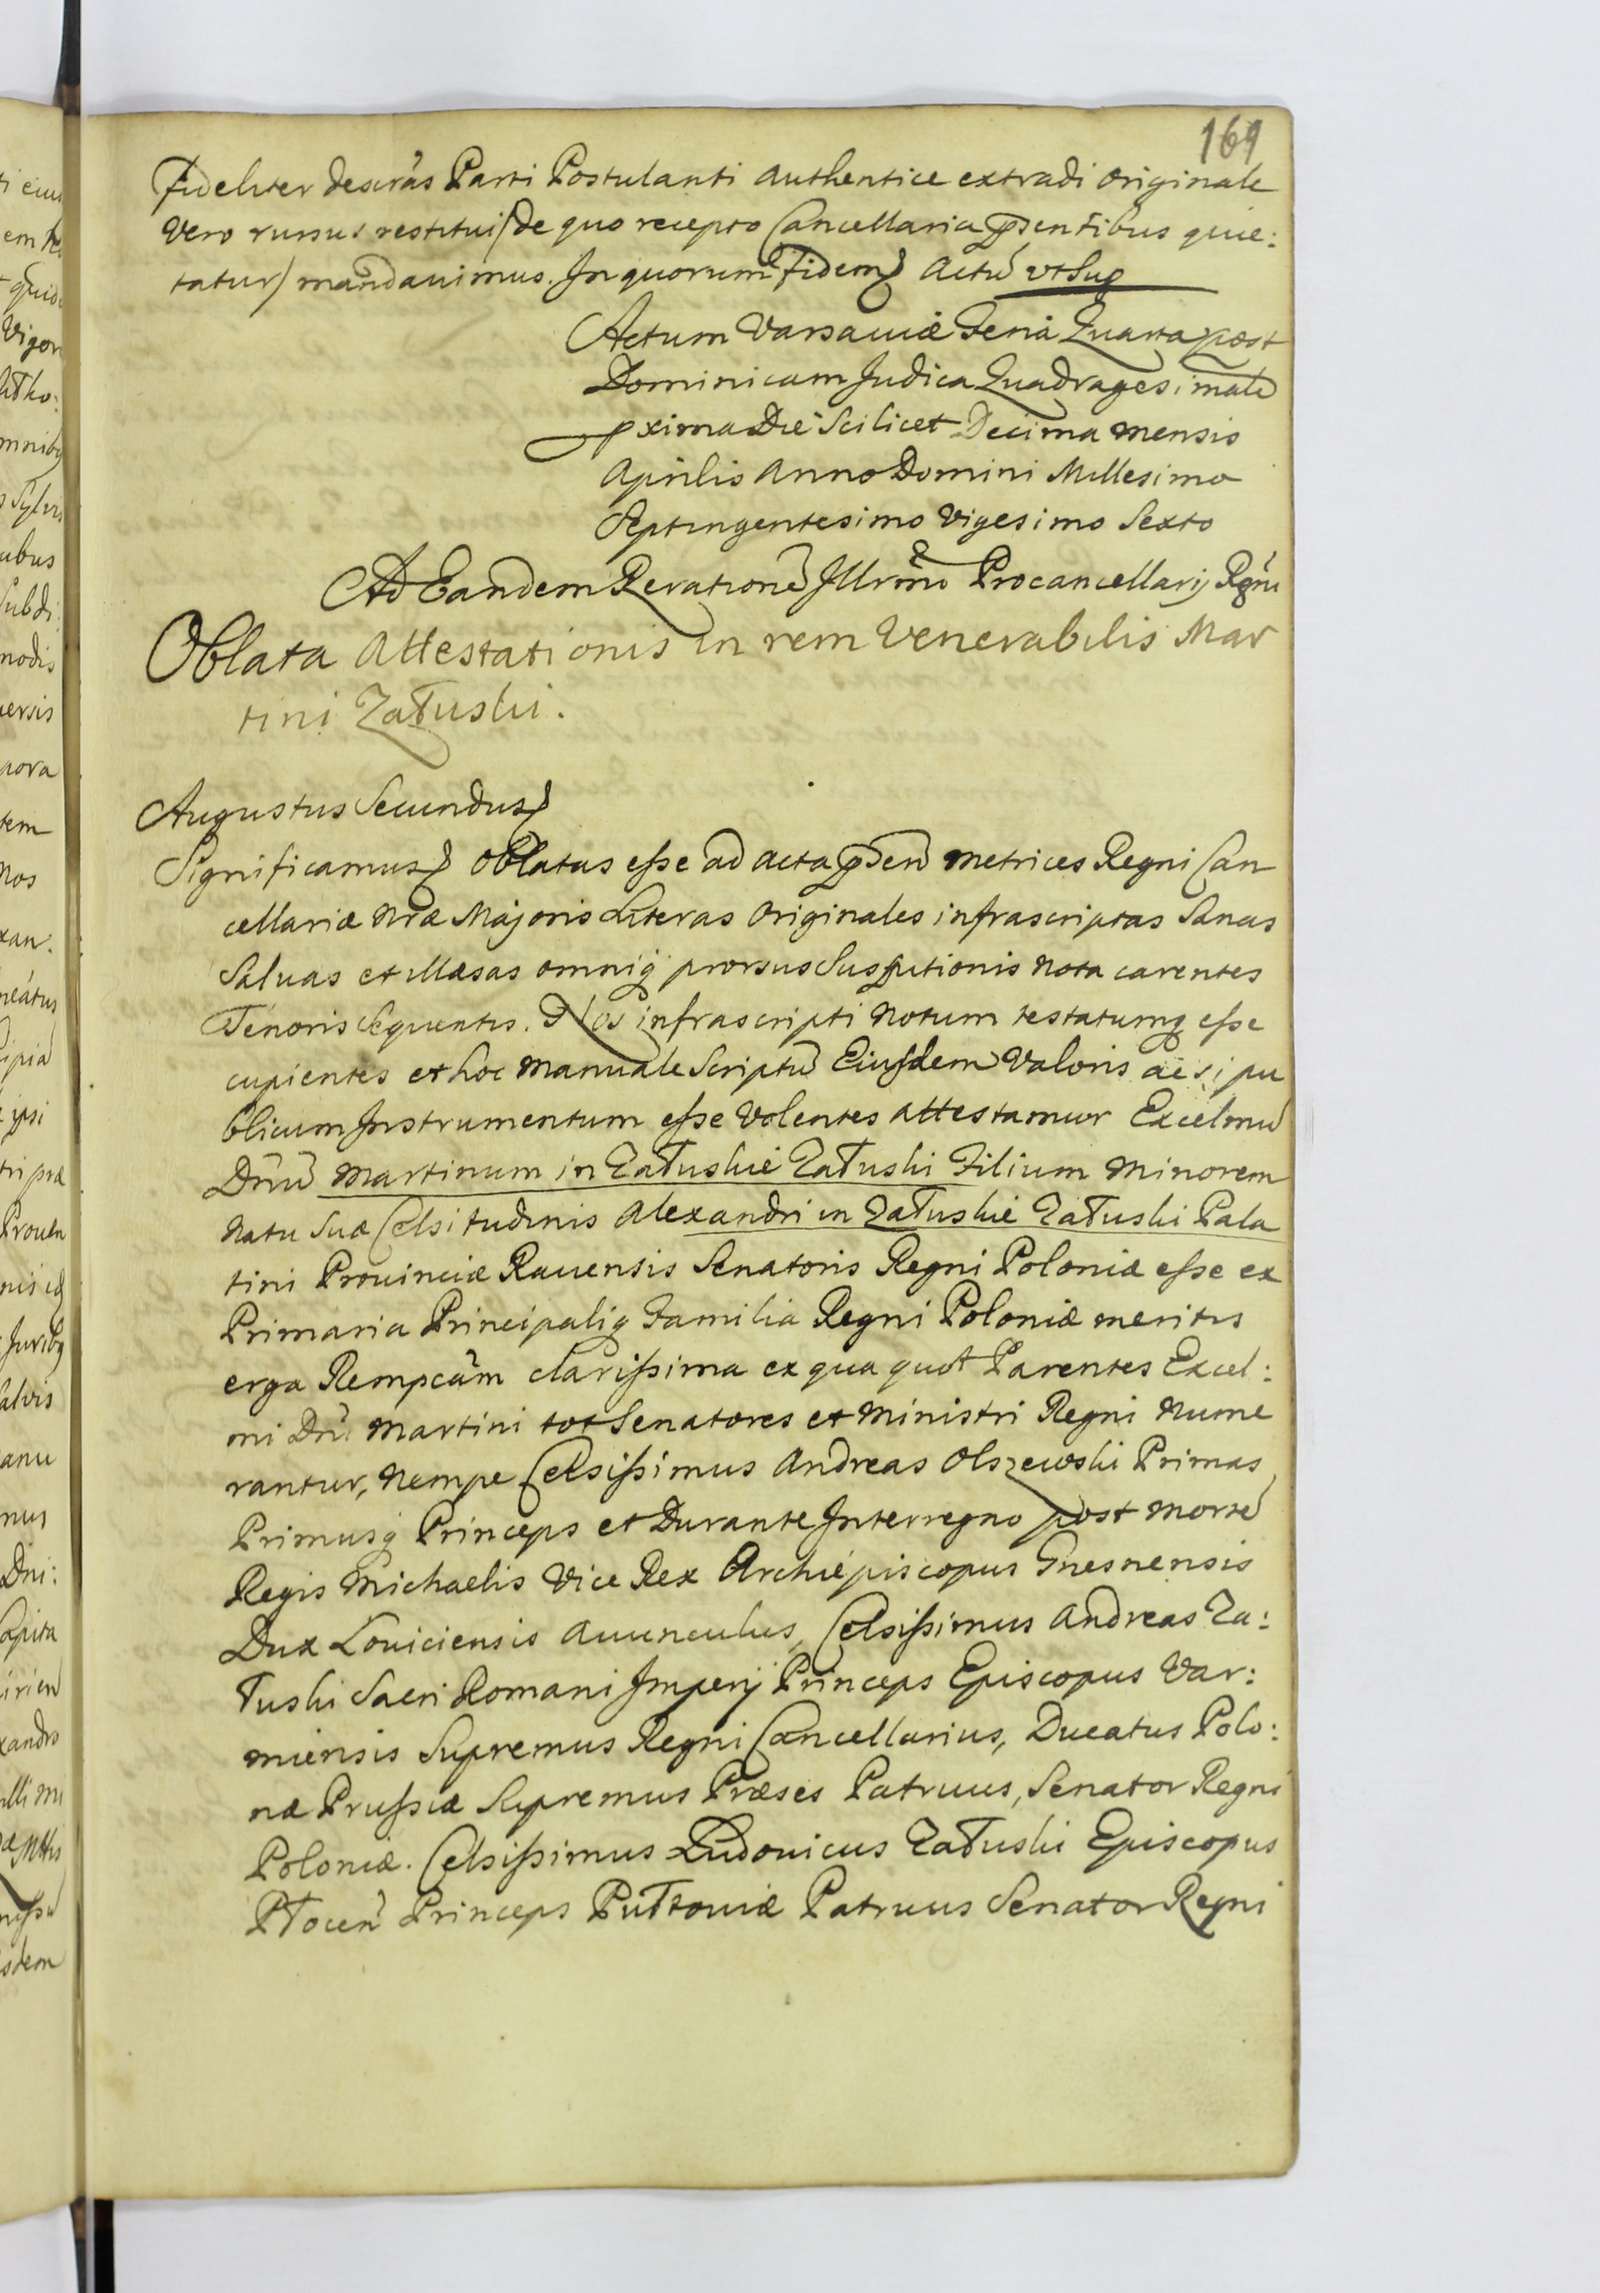 169
fideliter descrãs Parti Postulanti authentice extradi originale
vero rursus restitui (de quo recepto Cancellaria pñsentibus quie:
tatur) mandavimus. In quorum fidem Actũ ut sup
Actum Varsaviæ Feria Quarta post
Dominicam Judica Quadragesimalẽ
pxima Die Scilicet Decima mensis
Aprilis Anno Domini Millesimo
Septingentesimo Vigesimo Sexto
Ad Eandem Rerationẽ Illrm̃i Procancellarij Rgñi
Oblata Attestationis in rem Venerabilis Mar
tini Załuski.
Augustus Secundus
Significamus Oblatas esse ad acta pñseñ Metrices Regni Can
cellariæ nræ Majoris Literas Originales infrascriptas Sanas
Salvas et illæsas omniq prorsus Suspitionis nota carentes
Tenoris sequentis. Nos infrascripti Notum testatumq esse
cupientes et hoc manuale Scriptũ Eiusdem Valoris ac si pu
blicum Instrumentum esse Volentes attestamur Excelmũ
Dñũ Martinum in Załuskie Załuski Filium Minorem
Natu Suæ Celsitudinis Alexandri in Załuskie Załuski Pala
tini Provinciæ Ravensis Senatoris Regni Poloniæ esse ex
Primaria Principaliq Familia Regni Poloniæ meritis
erga Rempcãm clarissima ex qua quot Parentes Excel:
mi Dñi Martini tot Senatores et Ministri Regni Nume
rantur, Nempe Celsissimus Andreas Olszewski Primas
Primusq Princeps et Durante Interregno post mortẽ
Regis Michaelis Vice Rex Archiepiscopus Gnesnensis
Dux Loviciensis Avunculus, Celsissimus Andreas Za:
łuski Sacri Romani Imperij Princeps Episcopus Var:
miensis Supremus Regni Cancellarius, Ducatus Polo:
næ Prussiæ Supremus Præses Patruus, Senator Regni
Poloniæ. Celsissimus Ludovicus Załuski Episcopus
Płoceñ Princeps Pułtoviæ Patruus Senator Regni